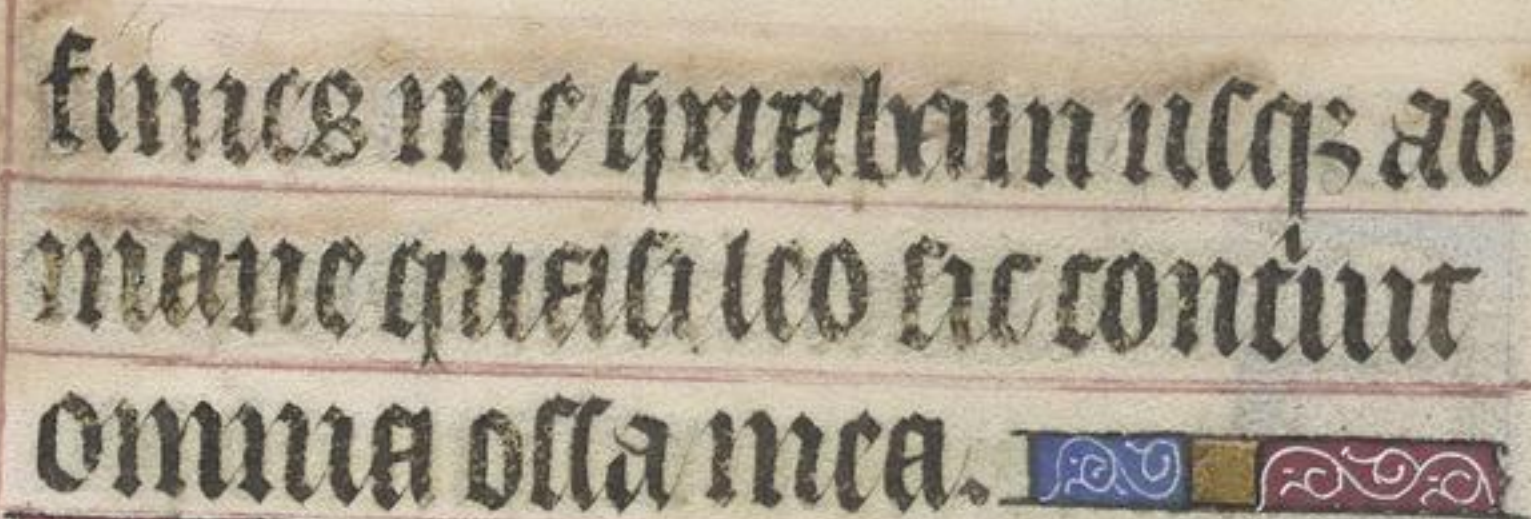 finies me sperabam usqꝫ ad
mane quasi leo sic contⁱuit
omnia ossa mea.